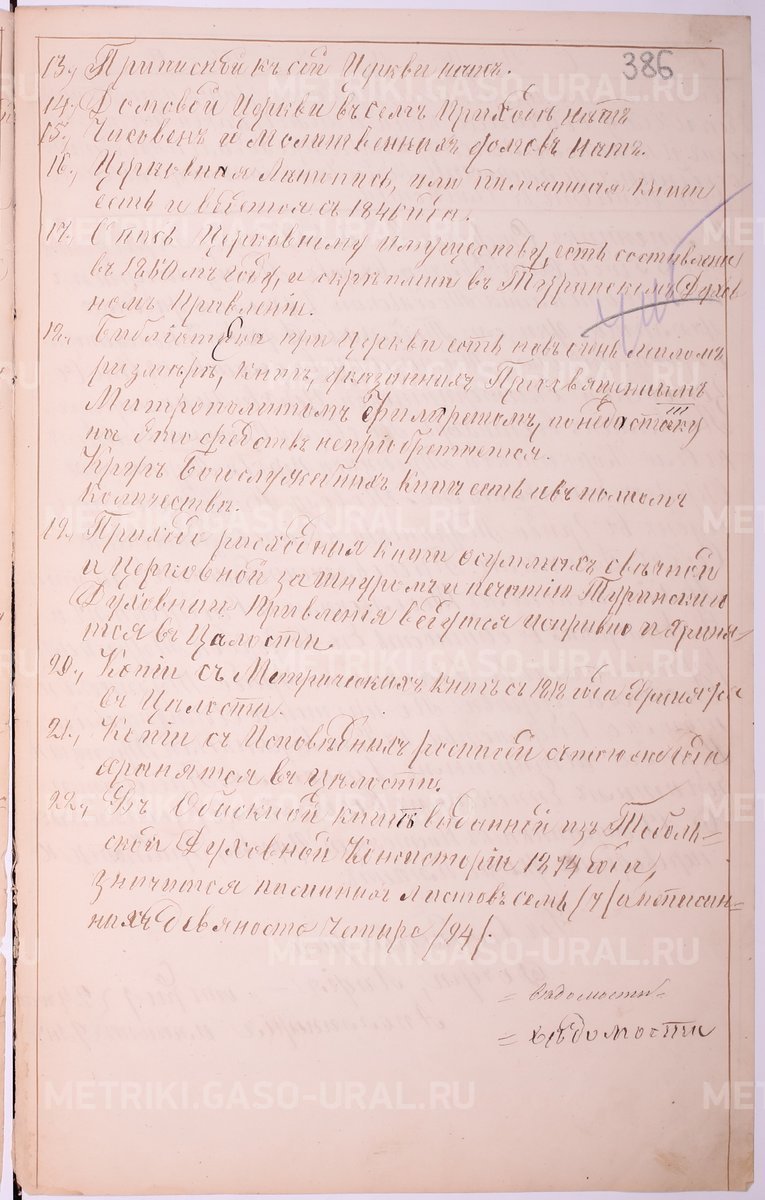 386
13., Приписной къ сей Церкви нѣтъ.
14., Домовой Церкви въ семъ Приходѣ нѣтъ
15., Часовенъ и Молитвенныхъ домовъ нѣтъ.
16., Церковная Лѣтопись, или памятная книга
есть и ведется съ 1846 года.
17., Опись Церковному имуществу, есть составлена
въ 1850мъ году, и скрѣплена въ Туринскомъ Духов
номъ Правленіи.
18., Библіотека при Церкви есть но въ очень маломъ
размѣрѣ, книгъ, указанныхъ Преосвященнымъ
Митрополитомъ Филаретомъ, по недостатку
на это средствъ непріобретается.
Кругъ Богослужебныхъ книгъ есть и въ полномъ
количествѣ.
19., Приходо расходныя книги о суммахъ свѣчной
и Церковной за шнуромъ и печатію Туринскаго
Духовнаго Правленія ведутся исправно и храня-
тся въ цѣлости.
20., Копіи съ Метрическихъ книгъ съ 1812 года хранятся
въ цѣлости.
21., Копіи съ Исповѣдныхъ росписей съ того же года
хранятся въ цѣлости.
22., Въ Обыскной книгѣ выданной изъ Тоболь-
ской Духовной Консисторіи 1874 года,
значится писанныхъ листовъ семь /7/ а неписан-
ныхъ девяносто четыре /94/.
= вѣдомости =
= вѣдомости
METRIKI.GASO-URAL.RU